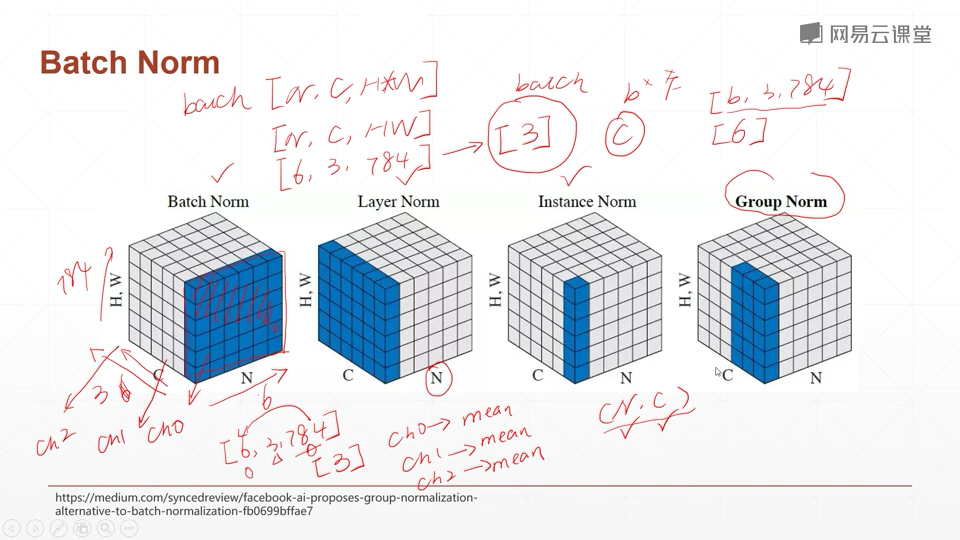 网易云课堂
Batch Norm
batch [N, C, H*W]
[N, C, HW]
[6, 3, 784]
batch
[3]
C
[6, 3, 784]
[6]
Batch Norm
Layer Norm
Instance Norm
Group Norm
784
H, W
H, W
H, W
H, W
C
N
C
N
C
N
C
N
3
6
ch2
ch1
ch0
[6, 3, 784]
0
[3]
ch0→ mean
ch1→mean
ch2→mean
(N, C)
https://medium.com/syncedreview/facebook-ai-proposes-group-normalization-
alternative-to-batch-normalization-fb0699bffae7